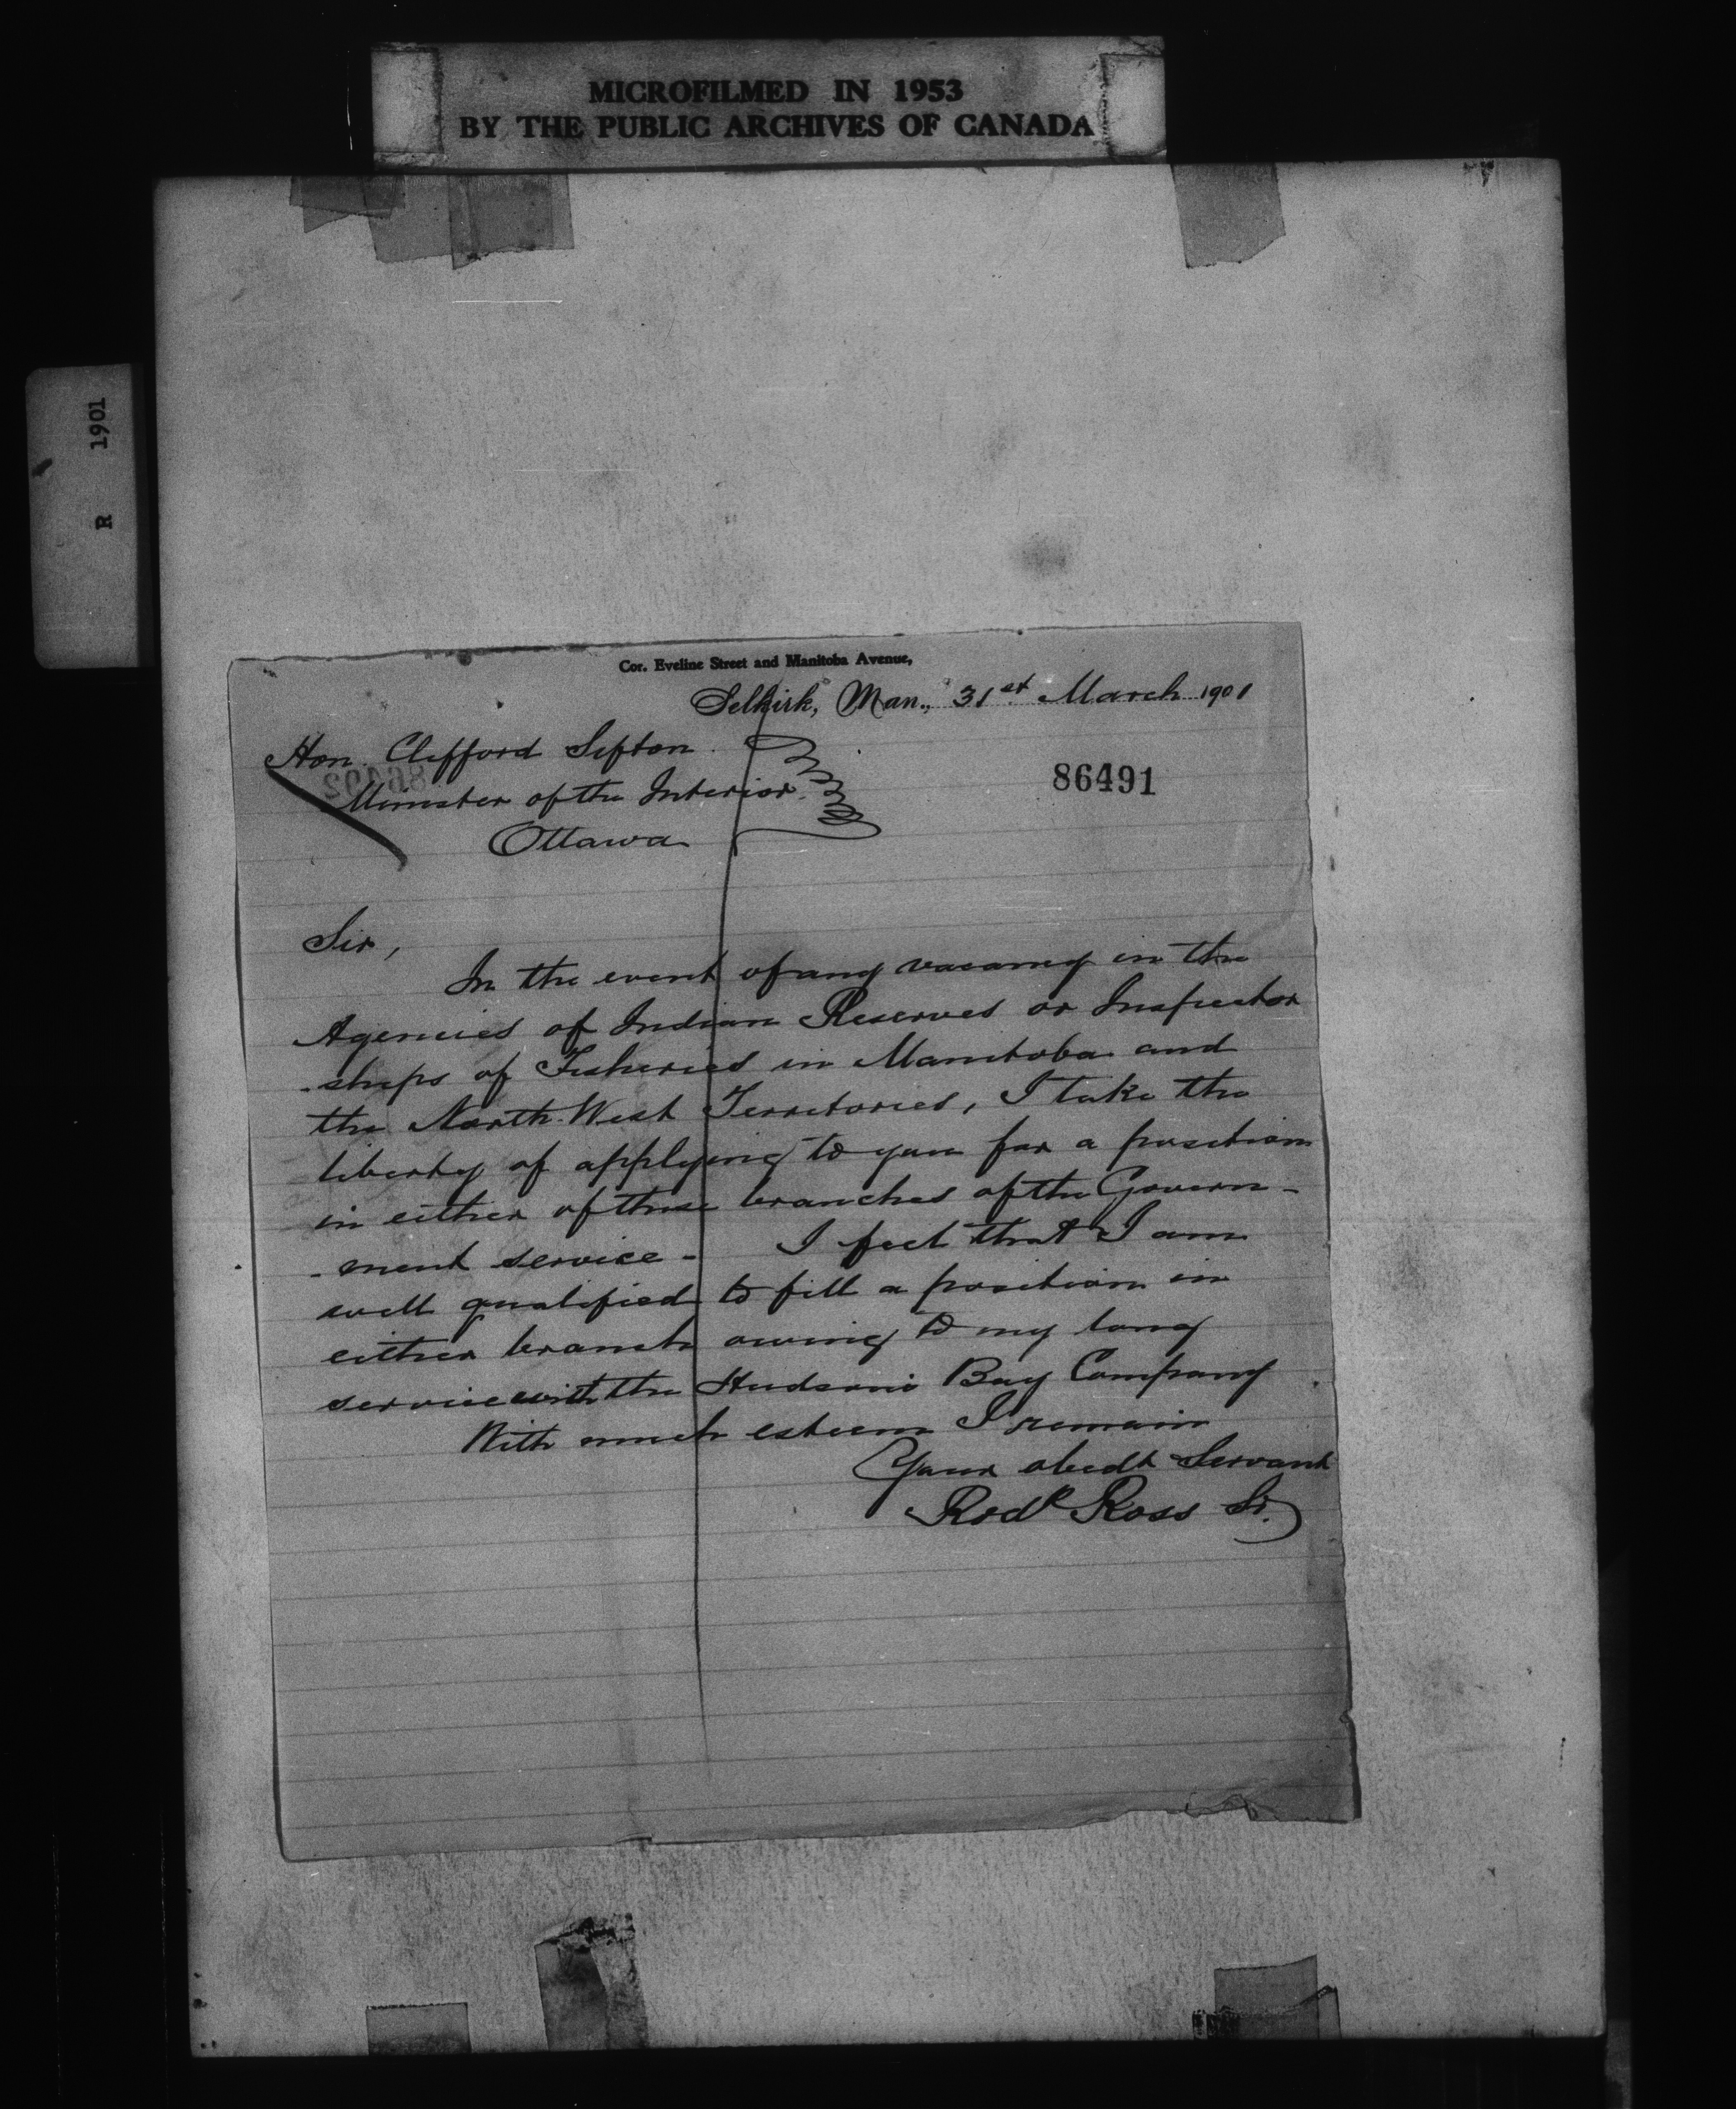 MICROFILMED IN 1953
BY THE PUBLIC ARCHIVES OF CANADA
R 1901
Cor. Eveline Street and Manitoba Avenue,
Selkirk, Man., 31st March 1901
Hon. Clifford Sifton
86492
86491
Minister of the Interior
Ottawa
Sir,
In the event of any vacancy in the
Agencies of Indian Reserves or Inspector
-ships of Fisheries in Manitoba and
the North West Territories, I take the
liberty of applying to you for a position
in either of these branches of the Govern-
-ment service - I feel that I am
well qualified to fill a position in
either branch owing to my long
service with the Hudson's Bay Company
With much esteem I remain
Your obedt Servant
Rodk Ross Sr.